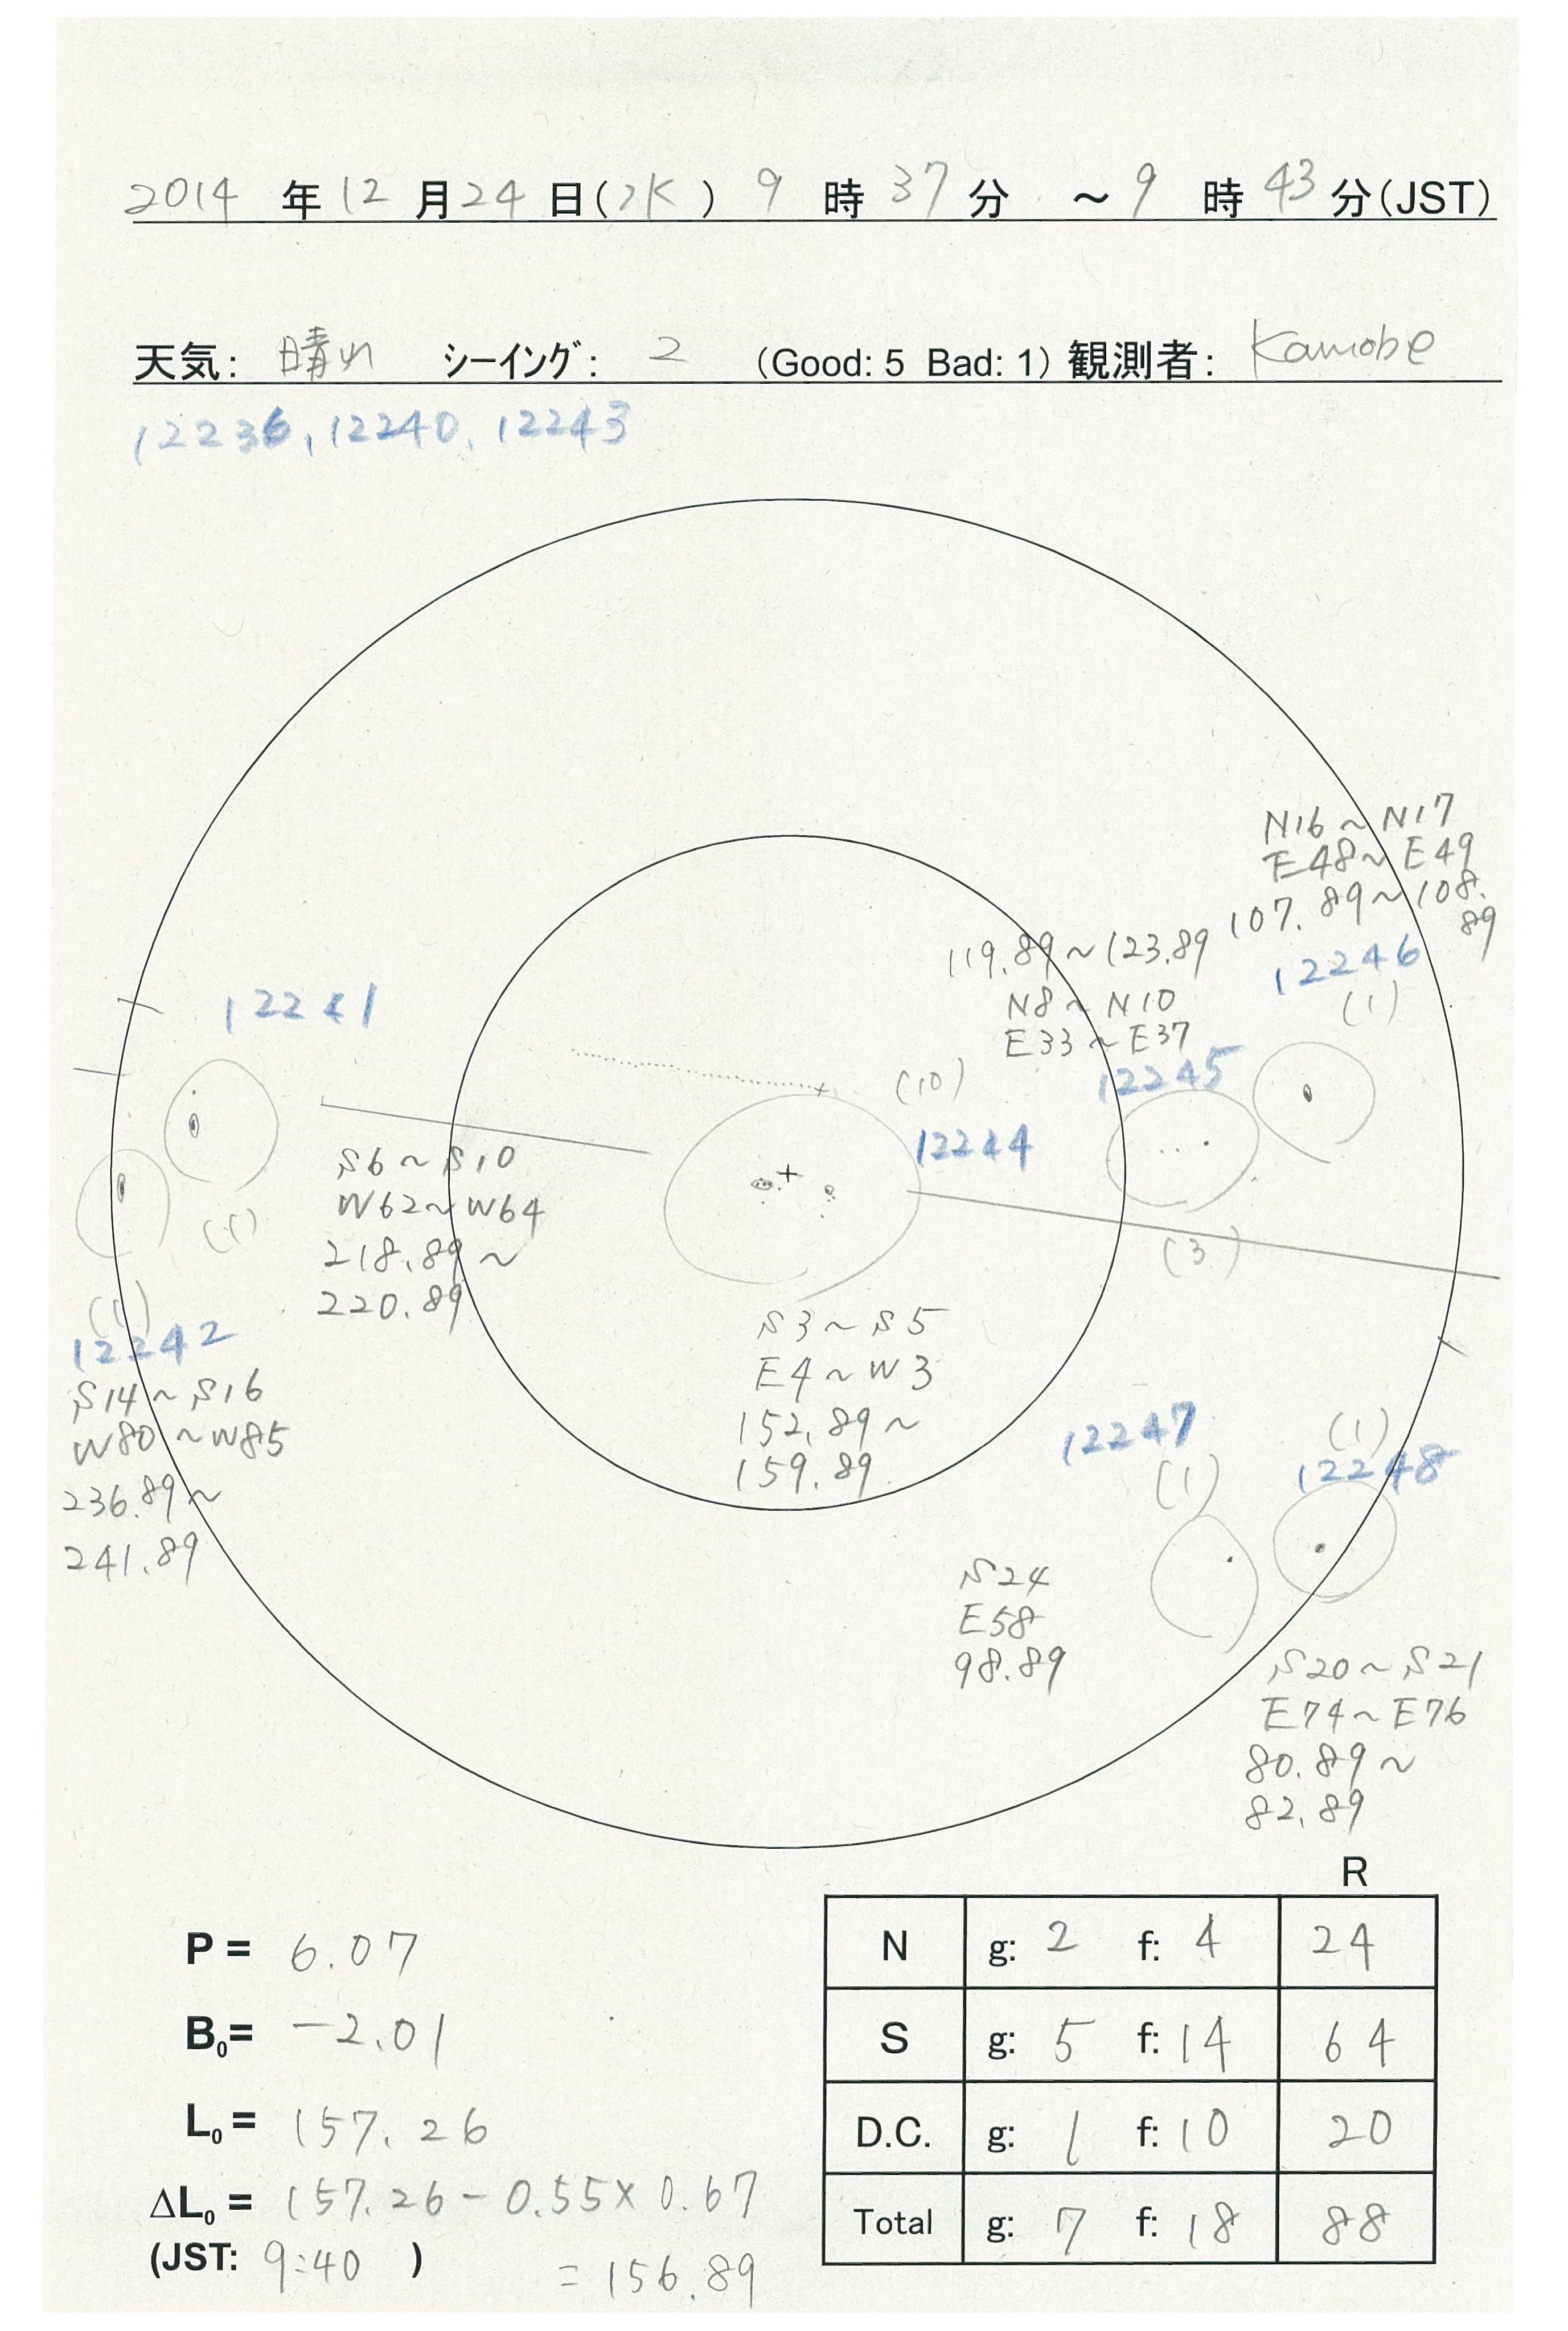 2014 年 12 月 24 日(水) 9 時 37 分 ~ 9 時 43 分(JST)
天気: 晴れ シーイング: 2 (Good: 5 Bad: 1) 観測者: Kamobe
12236, 12240, 12243
N16~N17
E48~E49
107.89~108.89
12246
(1)
119.89~123.89
N8~N10
E33~E37
12245
(3)
12241
(1)
S6~S10
W62~W64
218.89~
220.89
(10)
12244
S3~S5
E4~W3
152.89~
159.89
(1)
12242
S14~S16
W80~W85
236.89~
241.89
12247
(1)
S24
E58
98.89
(1)
12248
S20~S21
E74~E76
80.89~
82.89
P = 6.07
B0= -2.01
L0= 157.26
ΔL0= 157.26 - 0.55×0.67
(JST: 9:40 ) = 156.89
R
N g: 2 f: 4 24
S g: 5 f: 14 64
D.C. g: 1 f: 10 20
Total g: 7 f: 18 88